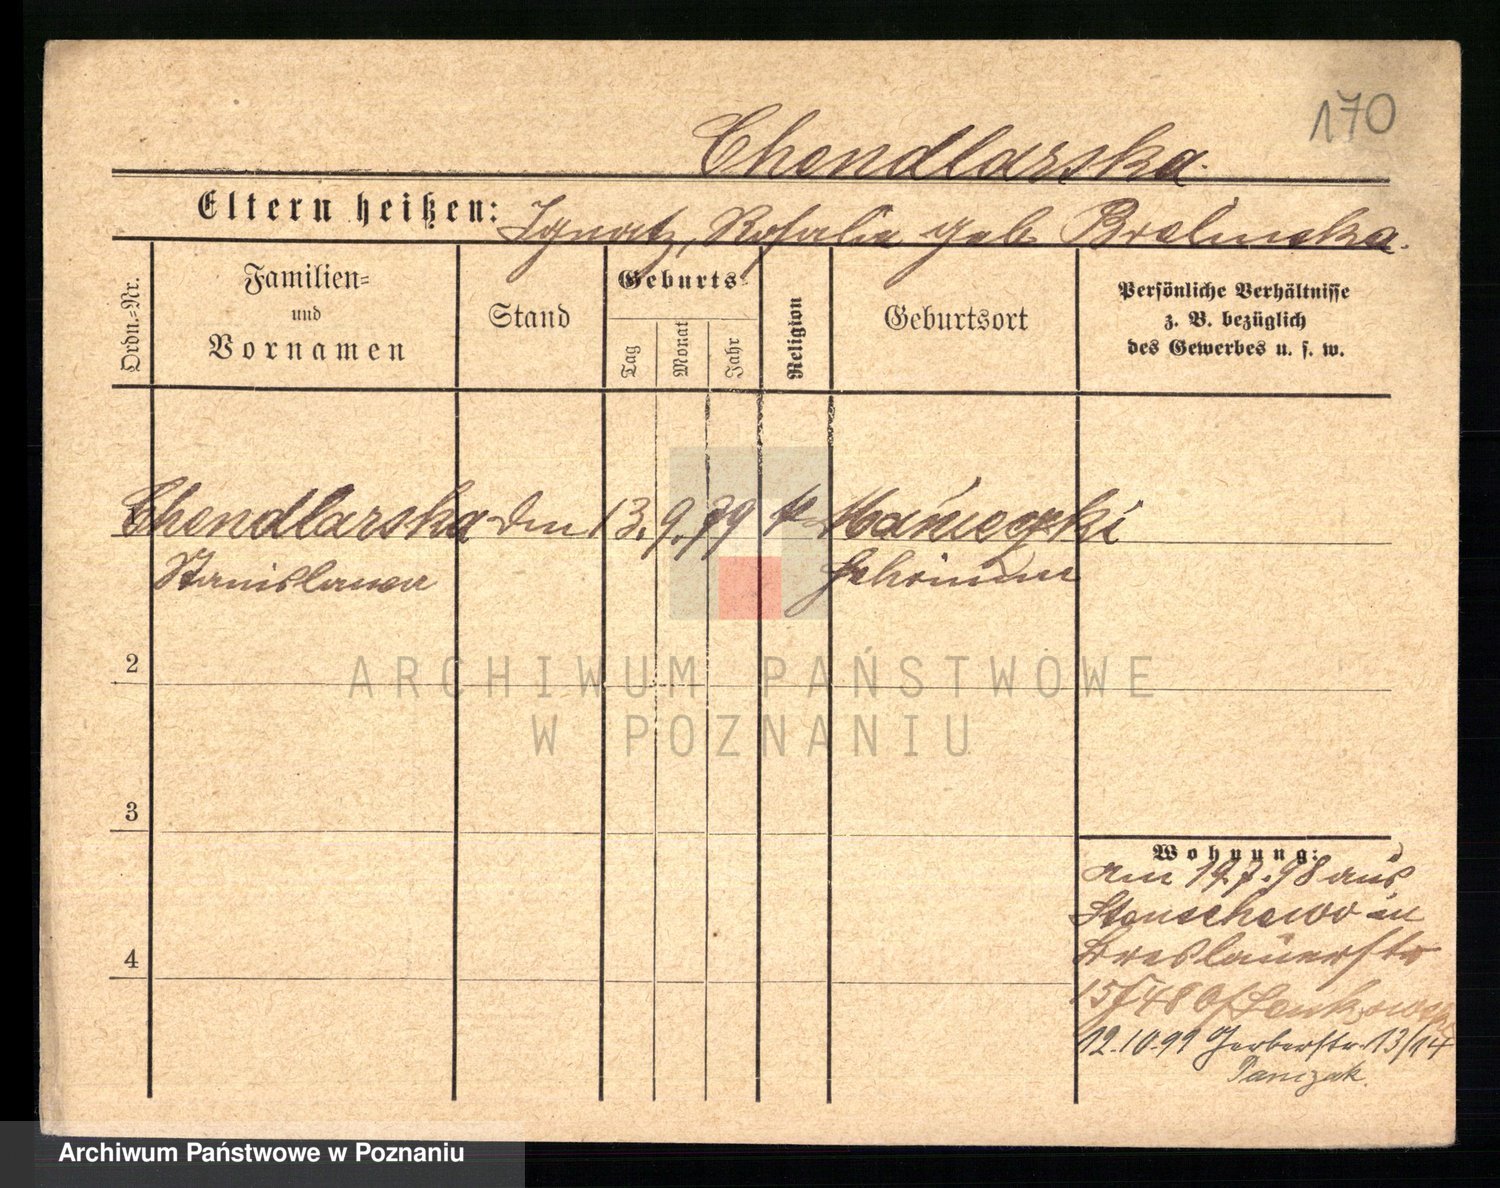 170
Chendlarska.
Eltern heißen: Ignatz, Rosalie geb. Brelinska.
Ordn.-Nr.
Familien- und Vornamen
Stand
Geburts-
Tag
Monat
Jahr
Religion
Geburtsort
Persönliche Verhältnisse
z. B. bezüglich
des Gewerbes u. s. w.
Chendlarska den 13. 9. 79 k Manieczki
Stanislawa Schrimm
2
3
4
Wohnung:
am 19.7.98 aus
Stenschewo in
Breslauerstr
15/
12.10.99 Gerberstr. 13/14
ARCHIWUM PAŃSTWOWE
W POZNANIU
Archiwum Państwowe w Poznaniu